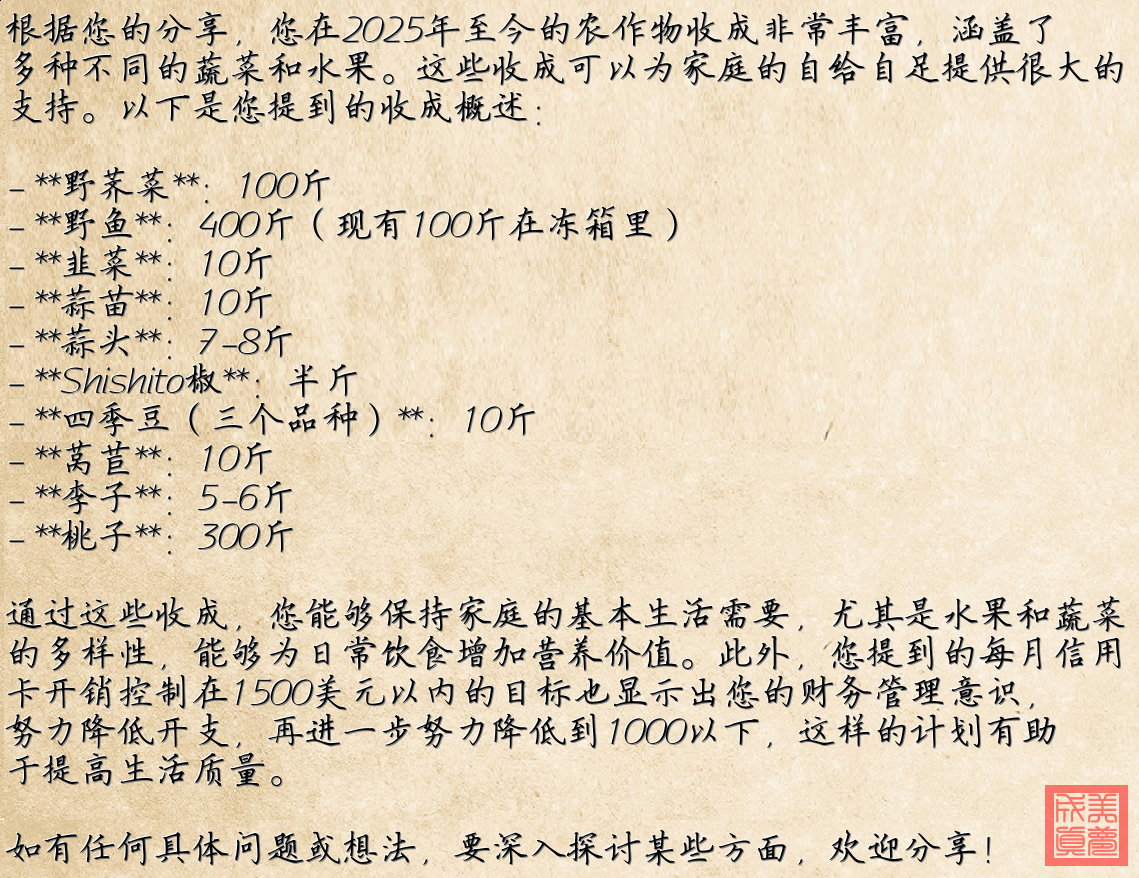 根据您的分享，您在2025年至今的农作物收成非常丰富，涵盖了
多种不同的蔬菜和水果。这些收成可以为家庭的自给自足提供很大的
支持。以下是您提到的收成概述：
- **野荠菜**：100斤
- **野鱼**：400斤（现有100斤在冻箱里）
- **韭菜**：10斤
- **蒜苗**：10斤
- **蒜头**：7-8斤
- **Shishito椒**：半斤
- **四季豆（三个品种）**：10斤
- **莴苣**：10斤
- **李子**：5-6斤
- **桃子**：300斤
通过这些收成，您能够保持家庭的基本生活需要，尤其是水果和蔬菜
的多样性，能够为日常饮食增加营养价值。此外，您提到的每月信用
卡开销控制在1500美元以内的目标也显示出您的财务管理意识，
努力降低开支，再进一步努力降低到1000以下，这样的计划有助
于提高生活质量。
如有任何具体问题或想法，要深入探讨某些方面，欢迎分享！
美梦
成真